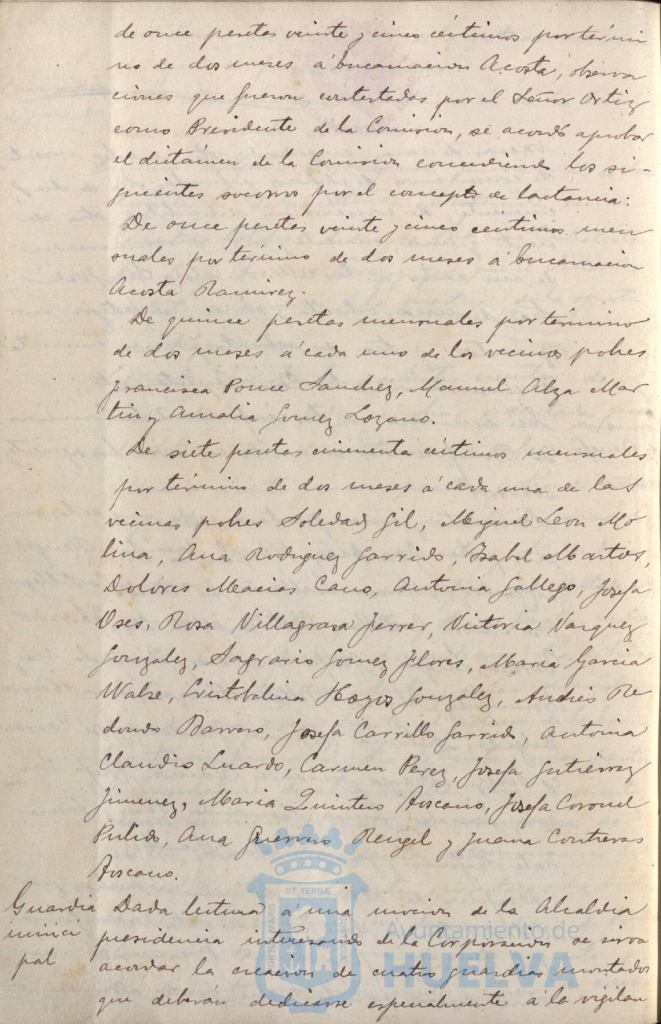 de once pesetas veinte y cinco céntimos por térmi
no de dos meses á Encarnacion Acosta, observa
ciones que fueron contestadas por el Señor Ortiz
como Presidente de la Comision, se acordó aprobar
el dictámen de la Comision concediendo los si-
guientes socorros por el concepto de lactancia:
De once pesetas veinte y cinco céntimos men
suales por término de dos meses á Encarnacion
Acosta Ramirez.
De quince pesetas mensuales por término
de dos meses á cada uno de los vecinos pobres
Francisca Ponce Sanchez, Manuel Alza Mar
tin y Amalia Gomez Lozano.
De siete pesetas cincuenta céntimos mensuales
por término de dos meses á cada una de las
vecinas pobres Soledad Gil, Miguel Leon Mo
lina, Ana Rodriguez Garrido, Isabel Martos,
Dolores Macias Cano, Antonia Gallego, Josefa
Oses, Rosa Villagrasa Ferrer, Victoria Vazquez
Gonzalez, Sagrario Gomez Flores, Maria Garcia
Cristobalina Hoyos Gonzalez, Andrés Re
dondo Barrero, Josefa Carrillo Garrido, Antonia
Claudio Luardo, Carmen Perez, Josefa Gutiérrez
Jimenez, Maria Quintero Toscano, Josefa Coronel
Pulido, Ana Guerrero Rengel y Juana Contreras
Toscano.
Guardia
munici
pal
Dada lectura á una mocion de la Alcaldia
presidencia interesando de la Corporacion se sirva
acordar la creacion de cuatro guardias montados
que deberán dedicarse especialmente á la vigilan
Ayuntamiento de
HUELVA